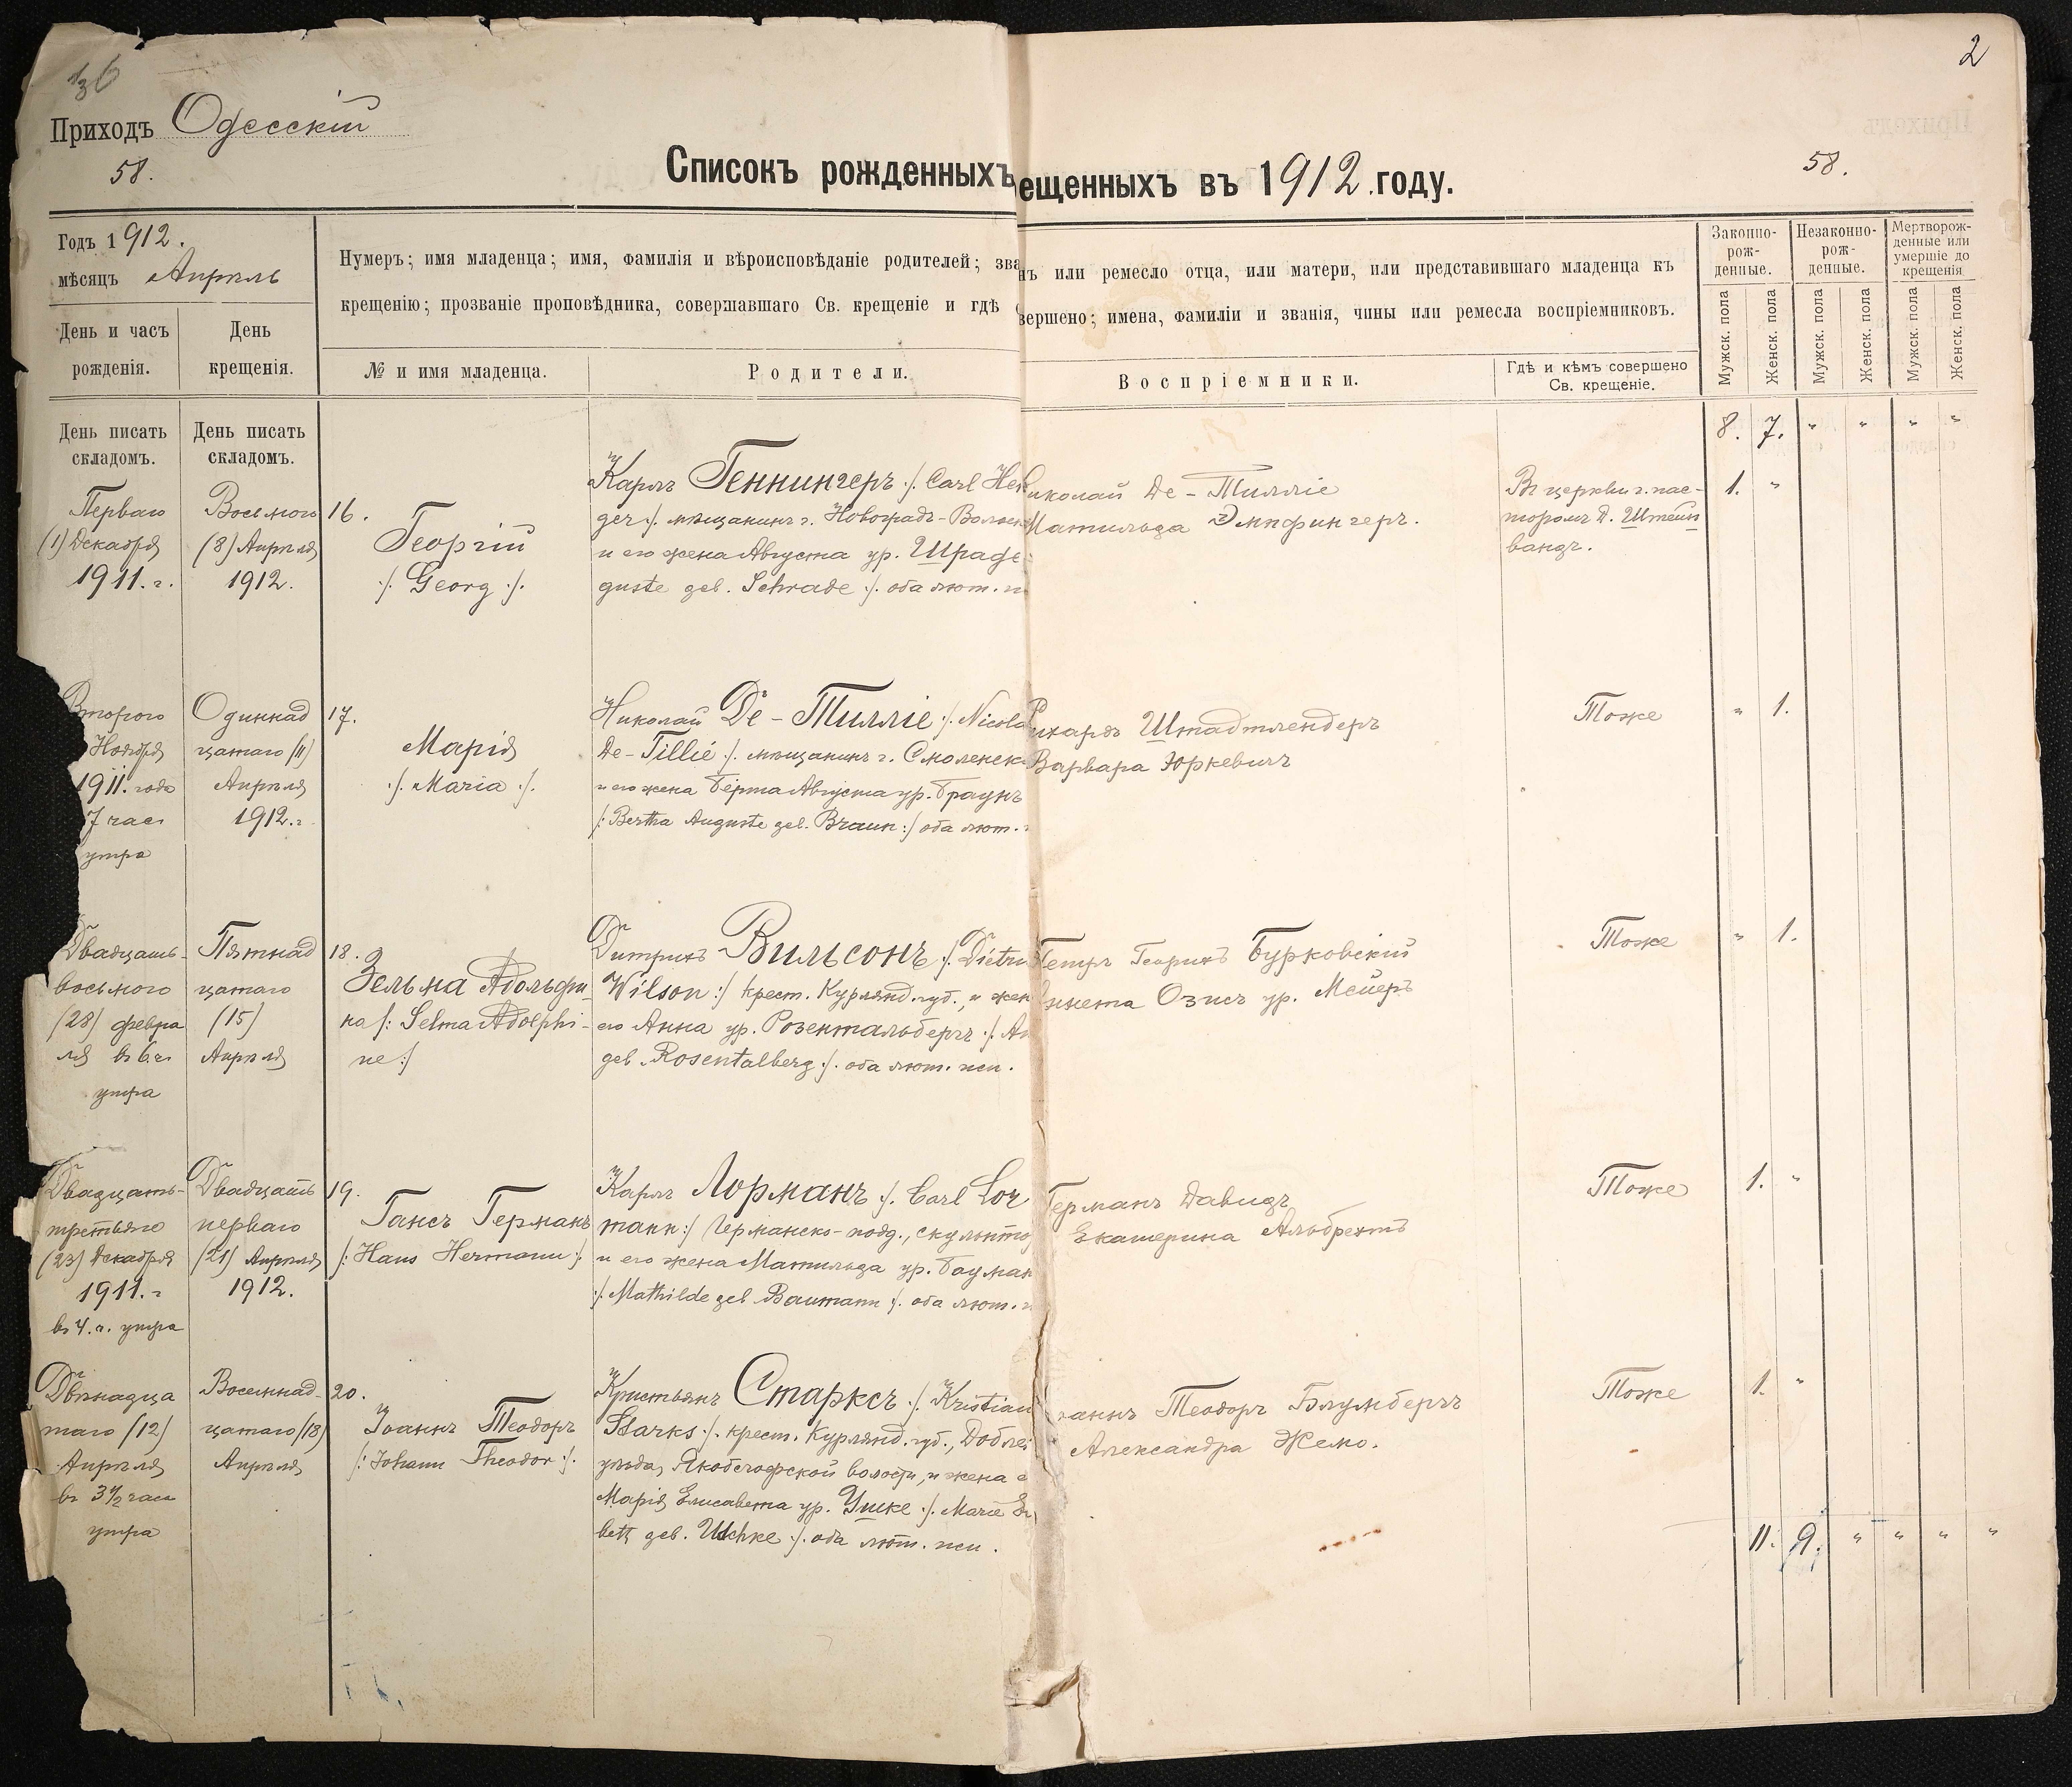 36
2
Приходъ Одесскій
58.
58.
Списокъ рожденныхъ
ещенныхъ въ 1912 году.
Годъ 1912.
мѣсяцъ Апрѣль
День и часъ рожденія.
День крещенія.
Нумеръ; имя младенца; имя, фамилія и вѣроисповѣданіе родителей; зва
нъ или ремесло отца, или матери, или представившаго младенца къ
крещенію; прозваніе проповѣдника, совершавшаго Св. крещеніе и гдѣ
вершено; имена, фамиліи и званія, чины или ремесла воспріемниковъ.
№ и имя младенца.
Родители.
Воспріемники.
Гдѣ и кѣмъ совершено
Св. крещеніе.
Законно-
рож-
денные.
Незаконно-
рож-
денные.
Мертворож-
денные или
умершіе до
крещенія
Мужск. пола
Женск. пола
Мужск. пола
Женск. пола
Мужск. пола
Женск. пола
День писать
складомъ.
День писать
складомъ.
8. 7. " " " "
Перваго
(1) Декабря
1911.г.
Восьмого
(8) Апрѣля
1912.
16.
Георгій
/: Georg :/.
Карлъ Геннингеръ /: Carl Hen
ger :/. мѣщанинъ г. Новоградъ-Волын
и его жена Августа ур. Шраде
guste geb. Schrade :/. оба лют. и
иколай Де-Тилліе
Матильда Эмпфингеръ.
Въ церкви г. пас-
торомъ Д. Штейн
вандъ.
1. "
Второго
Ноября
1911. года
7 час.
утра
Одиннад
цатаго (11)
Апрѣля
1912.г.
17.
Марія
/: Maria :/.
Николай Де-Тилліе /: Nicola
De-Tillié :/. мѣщанинъ г. Смоленск
и его жена Берта Августа ур. Браунъ
/: Bertha Auguste geb. Braun :/ оба лют.
Рихардъ Штадтлендеръ
Варвара Юркевичъ
Тоже
" 1.
Двадцать-
восьмого
(28) февра
ля въ 6 ч.
утра
Пятнад
цатаго
(15)
Апрѣля
18.
Зельма Адольфи-
на /: Selma Adolphi-
ne :/
Дитрихъ Вильсонъ /: Dietri
Wilson :/ крест. Курлянд. губ., и жен
его Анна ур. Розентальбергъ /: An
geb. Rosentalberg :/. оба лют. исп.
Петръ Генрихъ Бурковскій
ннета Озисъ ур. Мейеръ
Тоже
" 1.
Двадцать-
третьяго
(23) Декабря
1911.г.
въ 4.ч. утра
Двадцать
перваго
(21) Апрѣля
1912.
19.
Гансъ Германъ
/: Hans Hermann :/
Карлъ Лорманъ /: Carl Lor
mann :/ Германско-подд., скульпто
и его жена Матильда ур. Бауман
/: Mathilde geb Baumann :/. оба лют. и
Германъ Давидъ
Екатерина Альбрехтъ
Тоже
1. "
Двѣнадца
таго (12)
Апрѣля
въ 3 1/2 часа
утра
Восемнад-
цатаго (18)
Апрѣля
20.
Іоаннъ Теодоръ
/: Johann Theodor :/.
Кристьянъ Старксъ /: Kristian
Starks :/. крест. Курлянд. губ., Доблен
уѣзда, Якобсгофской волости, и жена е
Марія Елисавета ур. Ушке /: Marie Eli
beth geb. Uschke :/. оба лют. исп.
оаннъ Теодоръ Блумбергъ
Александра
Тоже
1. "
11. 9. " " " "